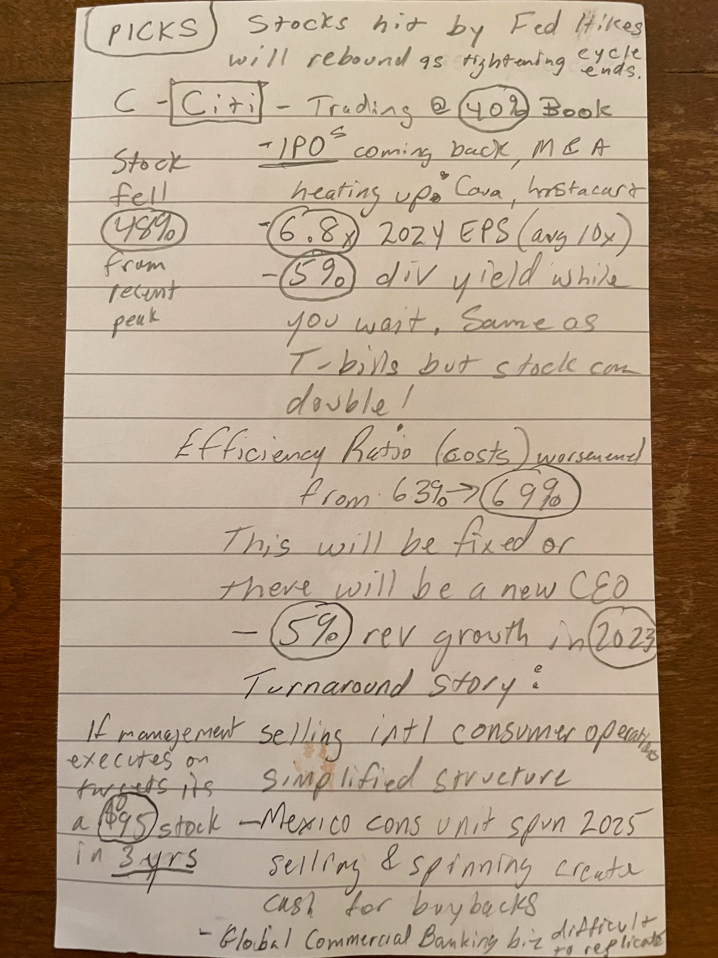 PICKS
Stocks hit by Fed Hikes
will rebound as tightening cycle
ends.
C - Citi - Trading @ 40% Book
- IPOs coming back, M & A
heating up: Cava, Instacart
Stock
fell
48%
from
recent
peak
- 6.8x 2024 EPS (avg 10x)
- 5% div yield while
you wait. Same as
T-bills but stock can
double!
Efficiency Ratio (costs) worsened
from 63% → 69%
This will be fixed or
there will be a new CEO
- 5% rev growth in 2023
Turnaround Story:
selling intl consumer operations
simplified structure
If management
executes on
targets its
a $95 stock
in 3 yrs
- Mexico cons unit spun 2025
selling & spinning create
cash for buybacks
- Global Commercial Banking biz difficult
to replicate